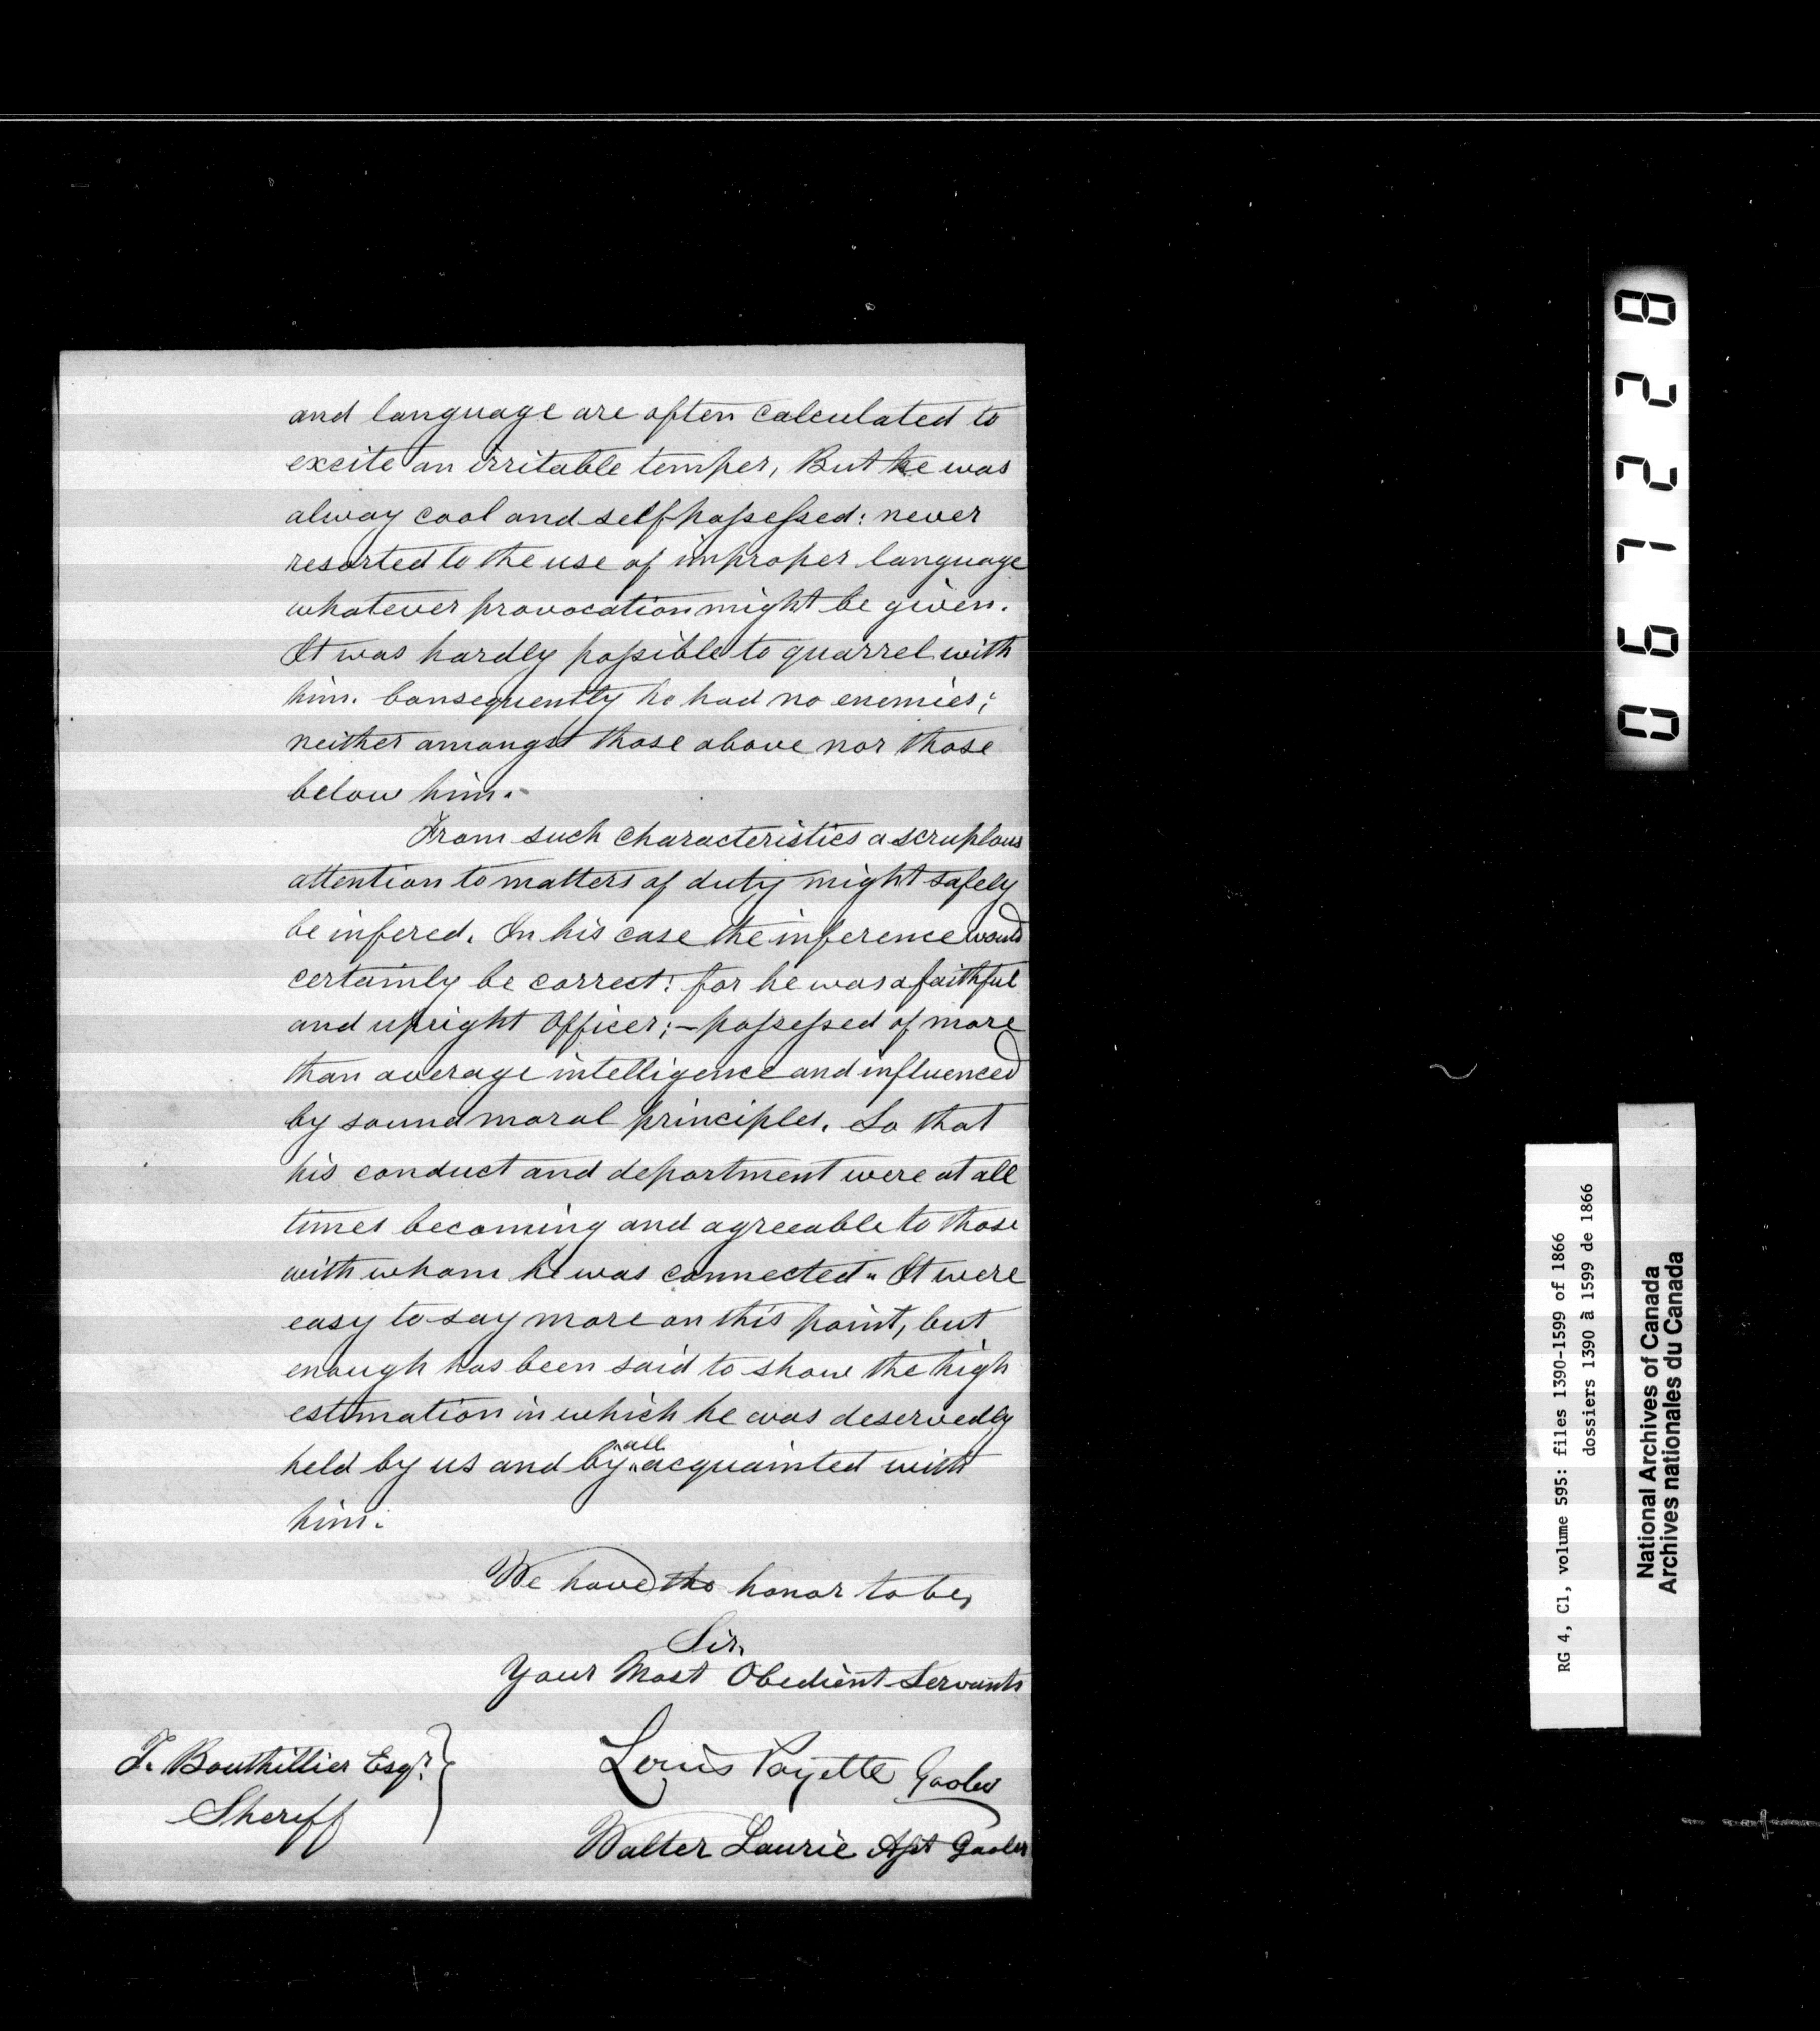 and language are often calculated to
excite an irritable temper, But he was
alway cool and self-possessed: never
resorted to the use of improper language
whatever provocation might be given.
It was hardly possible to quarrel with
him. Consequently he had no enemies;
neither amongst those above nor those
below him.
From such characteristics a scruplous
attention to matters of duty might safely
be infered. In his case the inference would
certainly be correct: for he was a faithful
and upright Officer;—possessed of more
than average intelligence and influenced
by sound moral principles. So that
his conduct and deportment were at all
times becoming and agreeable to those
with whom he was connected. It were
easy to say more on this point, but
enough has been said to show the high
estimation in which he was deservedly
held by us and by all acquainted with
him.
We have the honor to be,
Sir,
Your Most Obedient Servants
Louis Payette Gaoler
Walter Laurie Asst Gaoler
T. Bouthillier Esqr.
Sheriff
061228
RG 4, C1, volume 595: files 1390-1599 of 1866
dossiers 1390 à 1599 de 1866
National Archives of Canada
Archives nationales du Canada